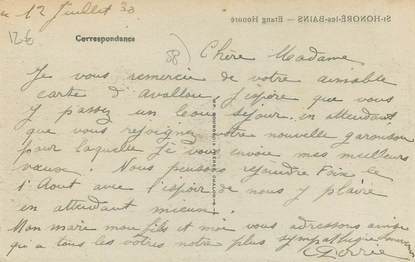 12 Juillet 30
126
Correspondance
St-HONORÉ-les-BAINS – Etang Honoré
Chère Madame
Je vous remercie de votre aimable
carte d'Avallon, j'espère que vous
y passez un bon séjour en attendant
que vous rejoigniez votre nouvelle garnison
pour laquelle je vous envoie mes meilleurs
vœux. Nous pensons rejoindre le
1 Aout avec l'espoir de nous y plaire
en attendant mieux.
Mon mari mon fils et moi vous adressons ainsi
qu'a tous les vôtres notre plus sympathique